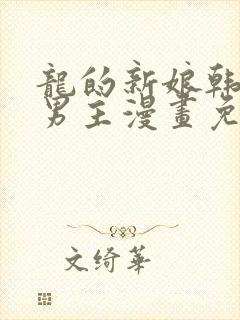 龍的新娘韩
男主漫畫免
文绮華